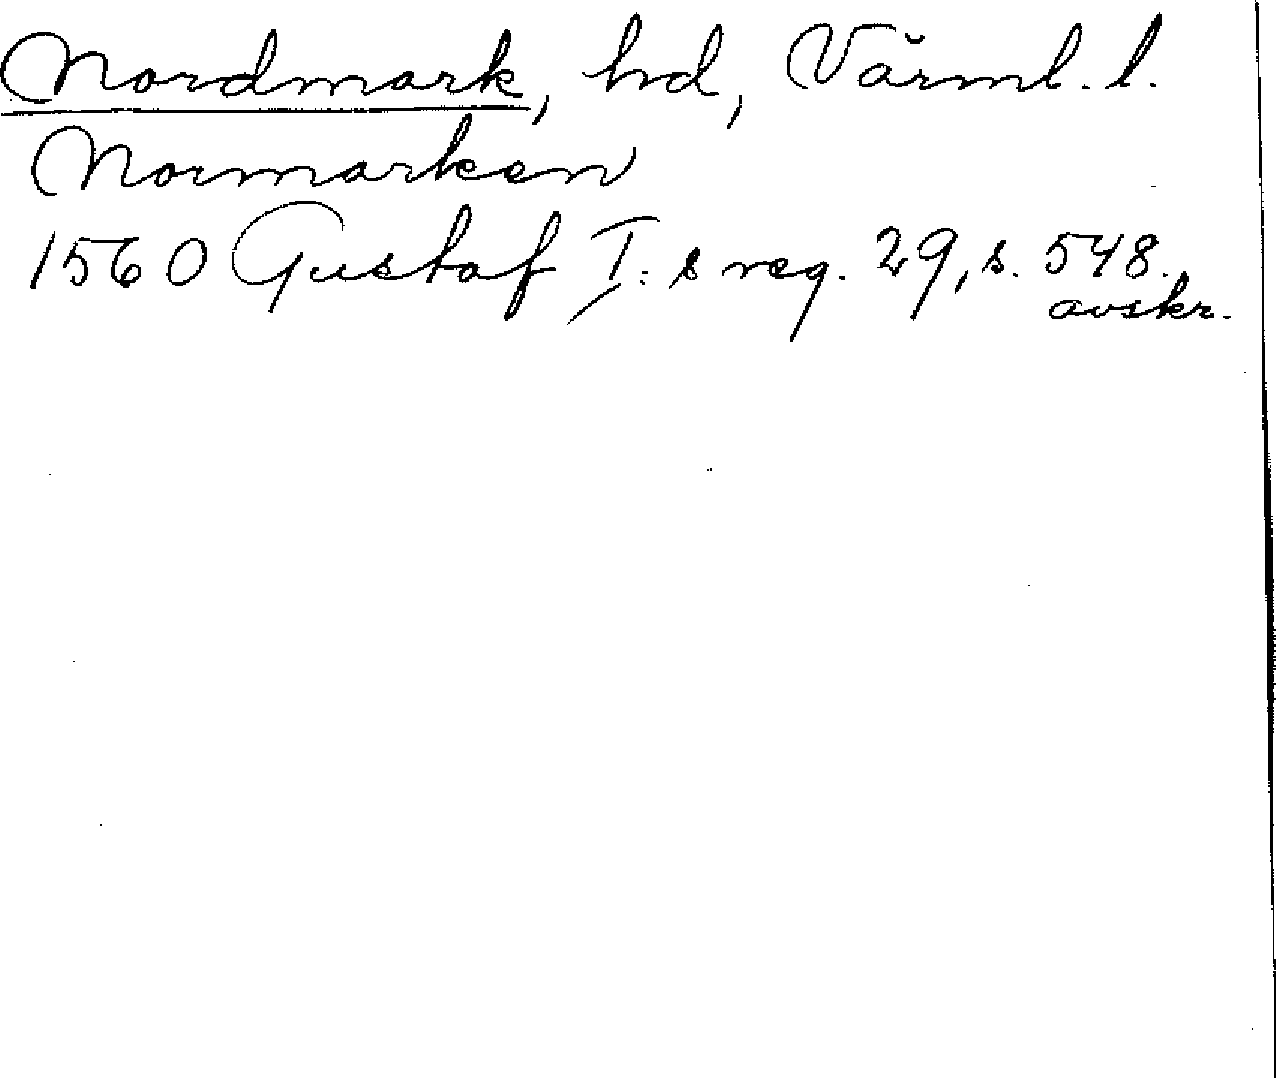 Nordmark, hd, Värml. l.
Normarken
1560 Gustaf I:s reg. 29, s. 548.,
avskr.